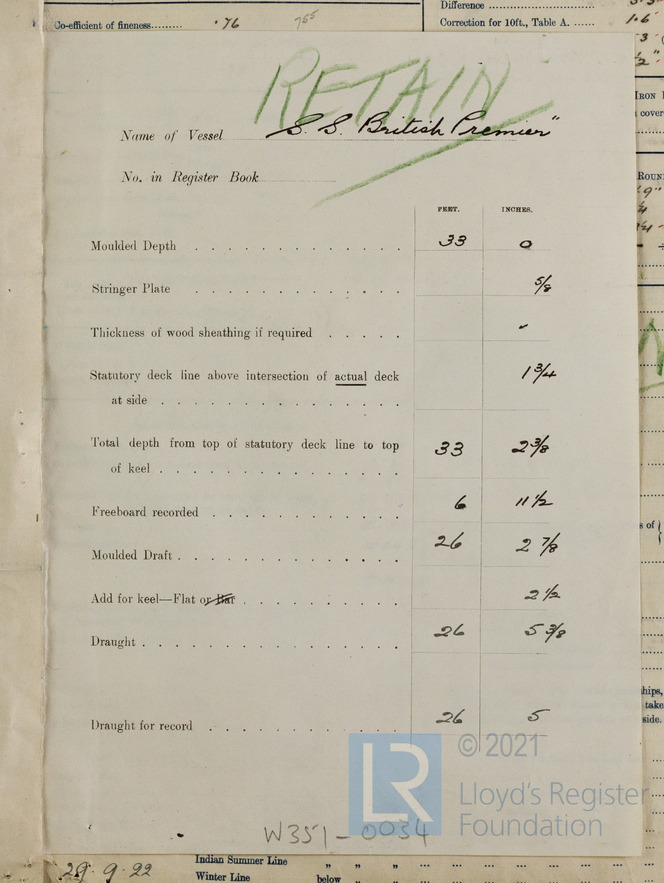 Co-efficient of fineness......... .76 755
Difference
Correction for 10ft., Table A. ...... 1.6
RETAIN
Name of Vessel S. S. British Premier"
No. in Register Book
FEET. INCHES.
Moulded Depth . . . . . . . . . . . . . 33 0
Stringer Plate . . . . . . . . . . . . . 5/8
Thickness of wood sheathing if required . . . . .
Statutory deck line above intersection of actual deck 1 3/4
at side . . . . . . . . . . . . . . .
Total depth from top of statutory deck line to top 33 2 3/8
of keel . . . . . . . . . . . . . . .
Freeboard recorded . . . . . . . . . . . . 6 11 1/2
Moulded Draft . . . . . . . . . . . . . . 26 2 7/8
Add for keel—Flat or Bar . . . . . . . . . . 2 1/2
Draught . . . . . . . . . . . . . . . . 26 5 3/8
Draught for record . . . . . . . . . . . . 26 5
LR
© 2021
Lloyd's Register
Foundation
W351-0034
29.9.22
Indian Summer Line " " "
Winter Line below " "